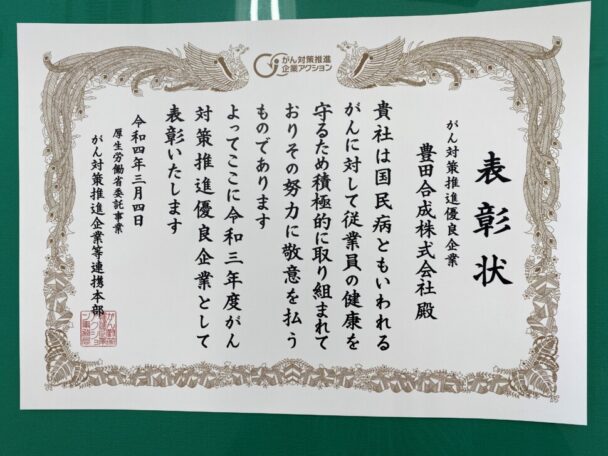 がん対策推進
企業アクション
表彰状
がん対策推進優良企業
豊田合成株式会社 殿
貴社は国民病ともいわれる
がんに対して従業員の健康を
守るため積極的に取り組まれて
おりその努力に敬意を払う
ものであります
よってここに令和三年度がん
対策推進優良企業として
表彰いたします
令和四年三月四日
厚生労働省委託事業
がん対策推進企業等連携本部